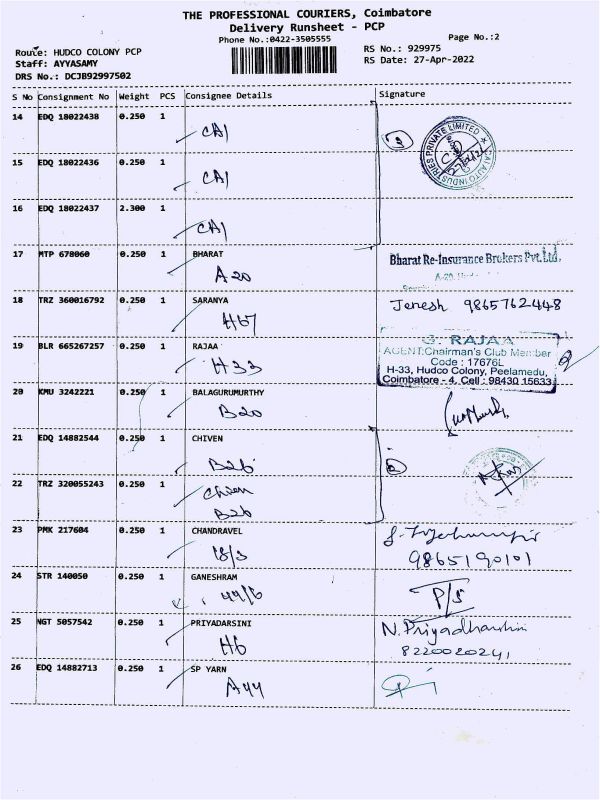 THE PROFESSIONAL COURIERS, Coimbatore
Delivery Runsheet - PCP
Phone No.:0422-3505555
Page No.:2
Route: HUDCO COLONY PCP
RS No.: 929975
Staff: AYYASAMY
RS Date: 27-Apr-2022
DRS No.: DCJB92997502
S No Consignment No Weight PCS Consignee Details Signature
14 EDQ 18022438 0.250 1
CAI
3
INDUSTRIES PRIVATE LIMITED
15 EDQ 18022436 0.250 1
CAI
16 EDQ 18022437 2.300 1
CAI
17 MTP 678060 0.250 1 BHARAT
A20
Bharat Re-Insurance Brokers Pvt.Ltd.
A-20,
18 TRZ 360016792 0.250 1 SARANYA
H67
Jenesh 9865762448
19 BLR 665267257 0.250 1 RAJAA
H33
G. RAJAA
AGENT:Chairman's Club Member
Code : 17676L
H-33, Hudco Colony, Peelamedu,
Coimbatore - 4, Cell : 98430 15633
20 KMU 3242221 0.250 1 BALAGURUMURTHY
B20
21 EDQ 14882544 0.250 1 CHIVEN
B26
22 TRZ 320055243 0.250 1
Chiven
B26
23 PMK 217604 0.250 1 CHANDRAVEL
18/3
9865190101
24 STR 140050 0.250 1 GANESHRAM
44/6
P/S
25 NGT 5057542 0.250 1 PRIYADARSINI
H6
N.Priyadharshini
8220020241
26 EDQ 14882713 0.250 1 SP YARN
A44